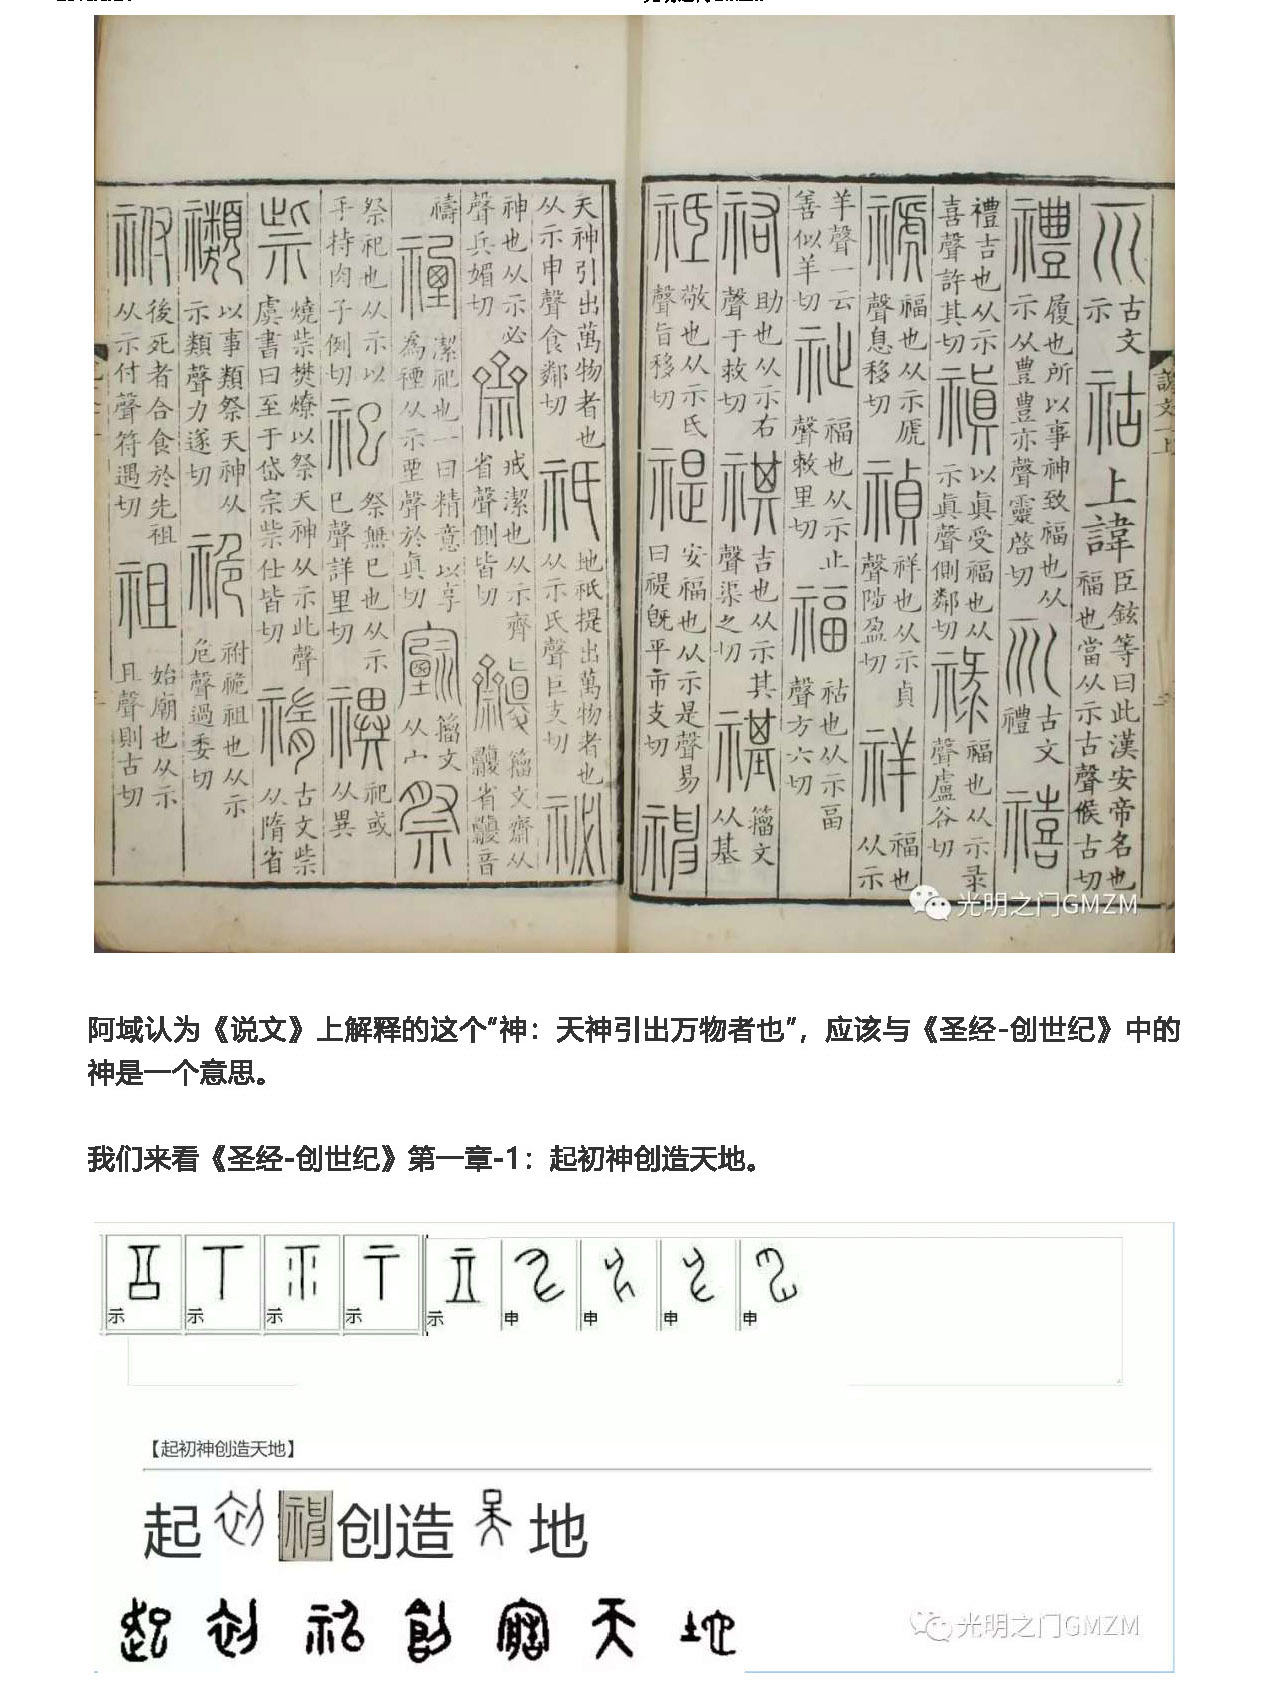 古文示 祜 上諱 臣鉉等曰此漢安帝名也福也當从示古聲候古切
禮 履也所以事神致福也从示从豊豊亦聲靈啓切 古文禮 禧
禮吉也从示喜聲許其切 禛 以眞受福也从示眞聲側鄰切 祿 福也从示录聲盧谷切
禠 福也从示虒聲息移切 禎 祥也从示貞聲陟盈切 祥 福也从示
羊聲一云善似羊切 祉 福也从示止聲敕里切 福 祜也从示畐聲方六切
祐 助也从示右聲于救切 祺 吉也从示其聲渠之切 禥 籀文从基
祗 敬也从示氐聲旨移切 禔 安福也从示是聲易曰禔旣平市支切 神
天神引出萬物者也从示申聲食鄰切 祇 地祇提出萬物者也从示氏聲巨支切 祕
神也从示必聲兵媚切 齋 戒潔也从示齊省聲側皆切 籀文齋从省音
禱 禋 潔祀也一曰精意以享為禋从示垔聲於眞切 籀文从宀 祭
祭祀也从示以手持肉子例切 祀 祭無巳也从示巳聲詳里切 禩 祀或从異
祡 燒祡樊燎以祭天神从示此聲虞書曰至于岱宗祡仕皆切 古文祡从隋省
禷 以事類祭天神从示類聲力遂切 祪 祔祪祖也从示危聲過委切
祔 後死者合食於先祖从示付聲符遇切 祖 始廟也从示且聲則古切
光明之门GMZM
阿域认为《说文》上解释的这个“神：天神引出万物者也”，应该与《圣经-创世纪》中的
神是一个意思。
我们来看《圣经-创世纪》第一章-1：起初神创造天地。
示 示 示 示 示 申 申 申 申
【起初神创造天地】
起初神创造天地
起初神创造天地
光明之门GMZM